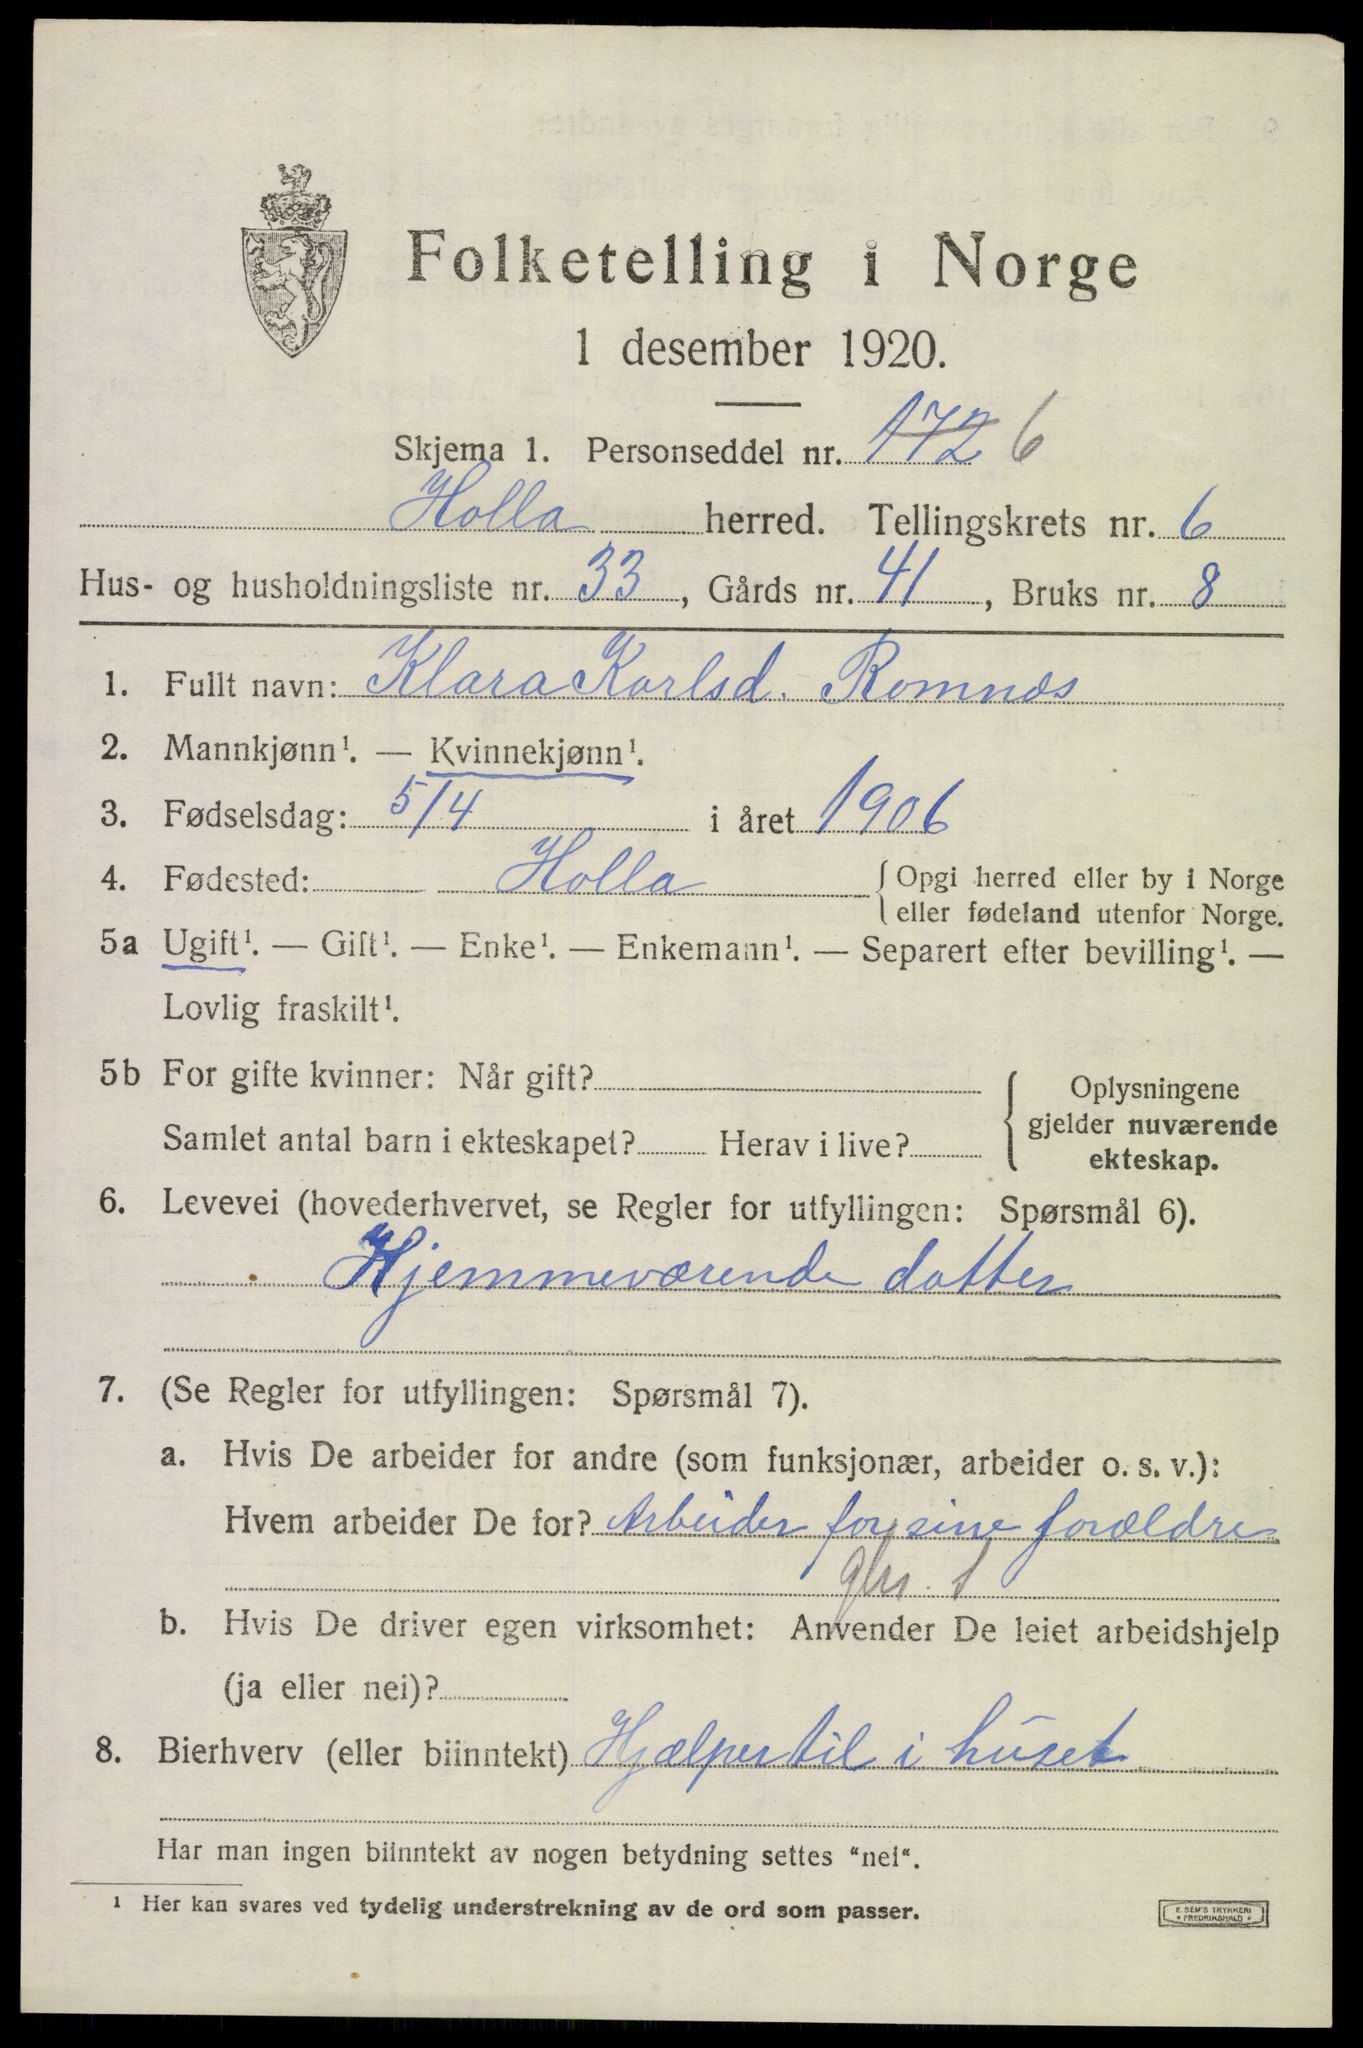 Folketelling i Norge
1 desember 1920.
Skjema 1. Personseddel nr. 172 6
Holla herred. Tellingskrets nr. 6
Hus- og husholdningsliste nr. 33, Gårds nr. 41, Bruks nr. 8
1. Fullt navn: Klara Karlsd. Romnes
2. Mannkjønn¹. — Kvinnekjønn¹.
3. Fødselsdag: 5/4 i året 1906
4. Fødested: Holla { Opgi herred eller by i Norge
eller fødeland utenfor Norge.
5a Ugift¹. — Gift¹. — Enke¹. — Enkemann¹. — Separert efter bevilling¹. —
Lovlig fraskilt¹.
5b For gifte kvinner: Når gift?
Samlet antal barn i ekteskapet? Herav i live?
{ Oplysningene
gjelder nuværende
ekteskap.
6. Levevei (hovederhvervet, se Regler for utfyllingen: Spørsmål 6).
Hjemmeværende datter
7. (Se Regler for utfyllingen: Spørsmål 7).
a. Hvis De arbeider for andre (som funksjonær, arbeider o. s. v.):
Hvem arbeider De for? Arbeider for sine forældre
b. Hvis De driver egen virksomhet: Anvender De leiet arbeidshjelp
(ja eller nei)?
8. Bierhverv (eller biinntekt) Hjælper til i huset
Har man ingen biinntekt av nogen betydning settes "nei".
¹ Her kan svares ved tydelig understrekning av de ord som passer.
E. SEM'S TRYKKERI
FREDRIKSHALD